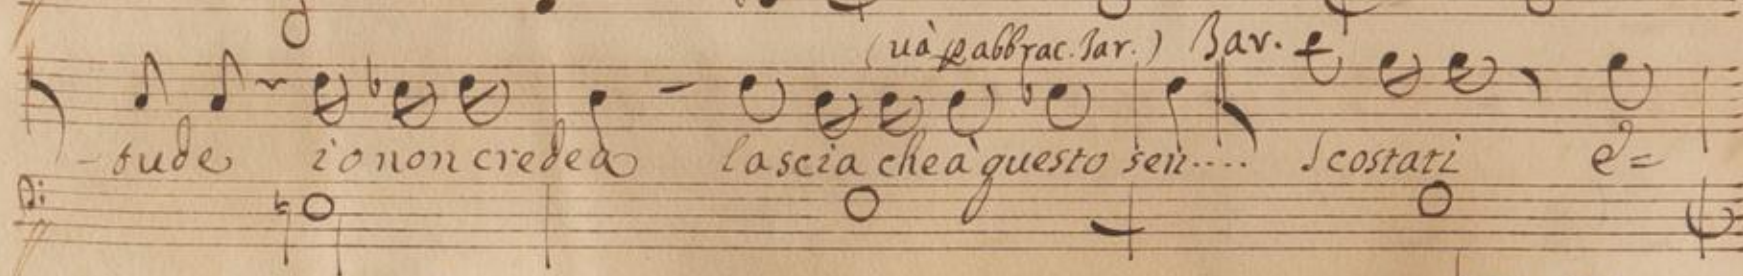 (uà p abbrac. Bar.) Bar.
-tude io non credea lascia che à questo sen.... Scostati è=